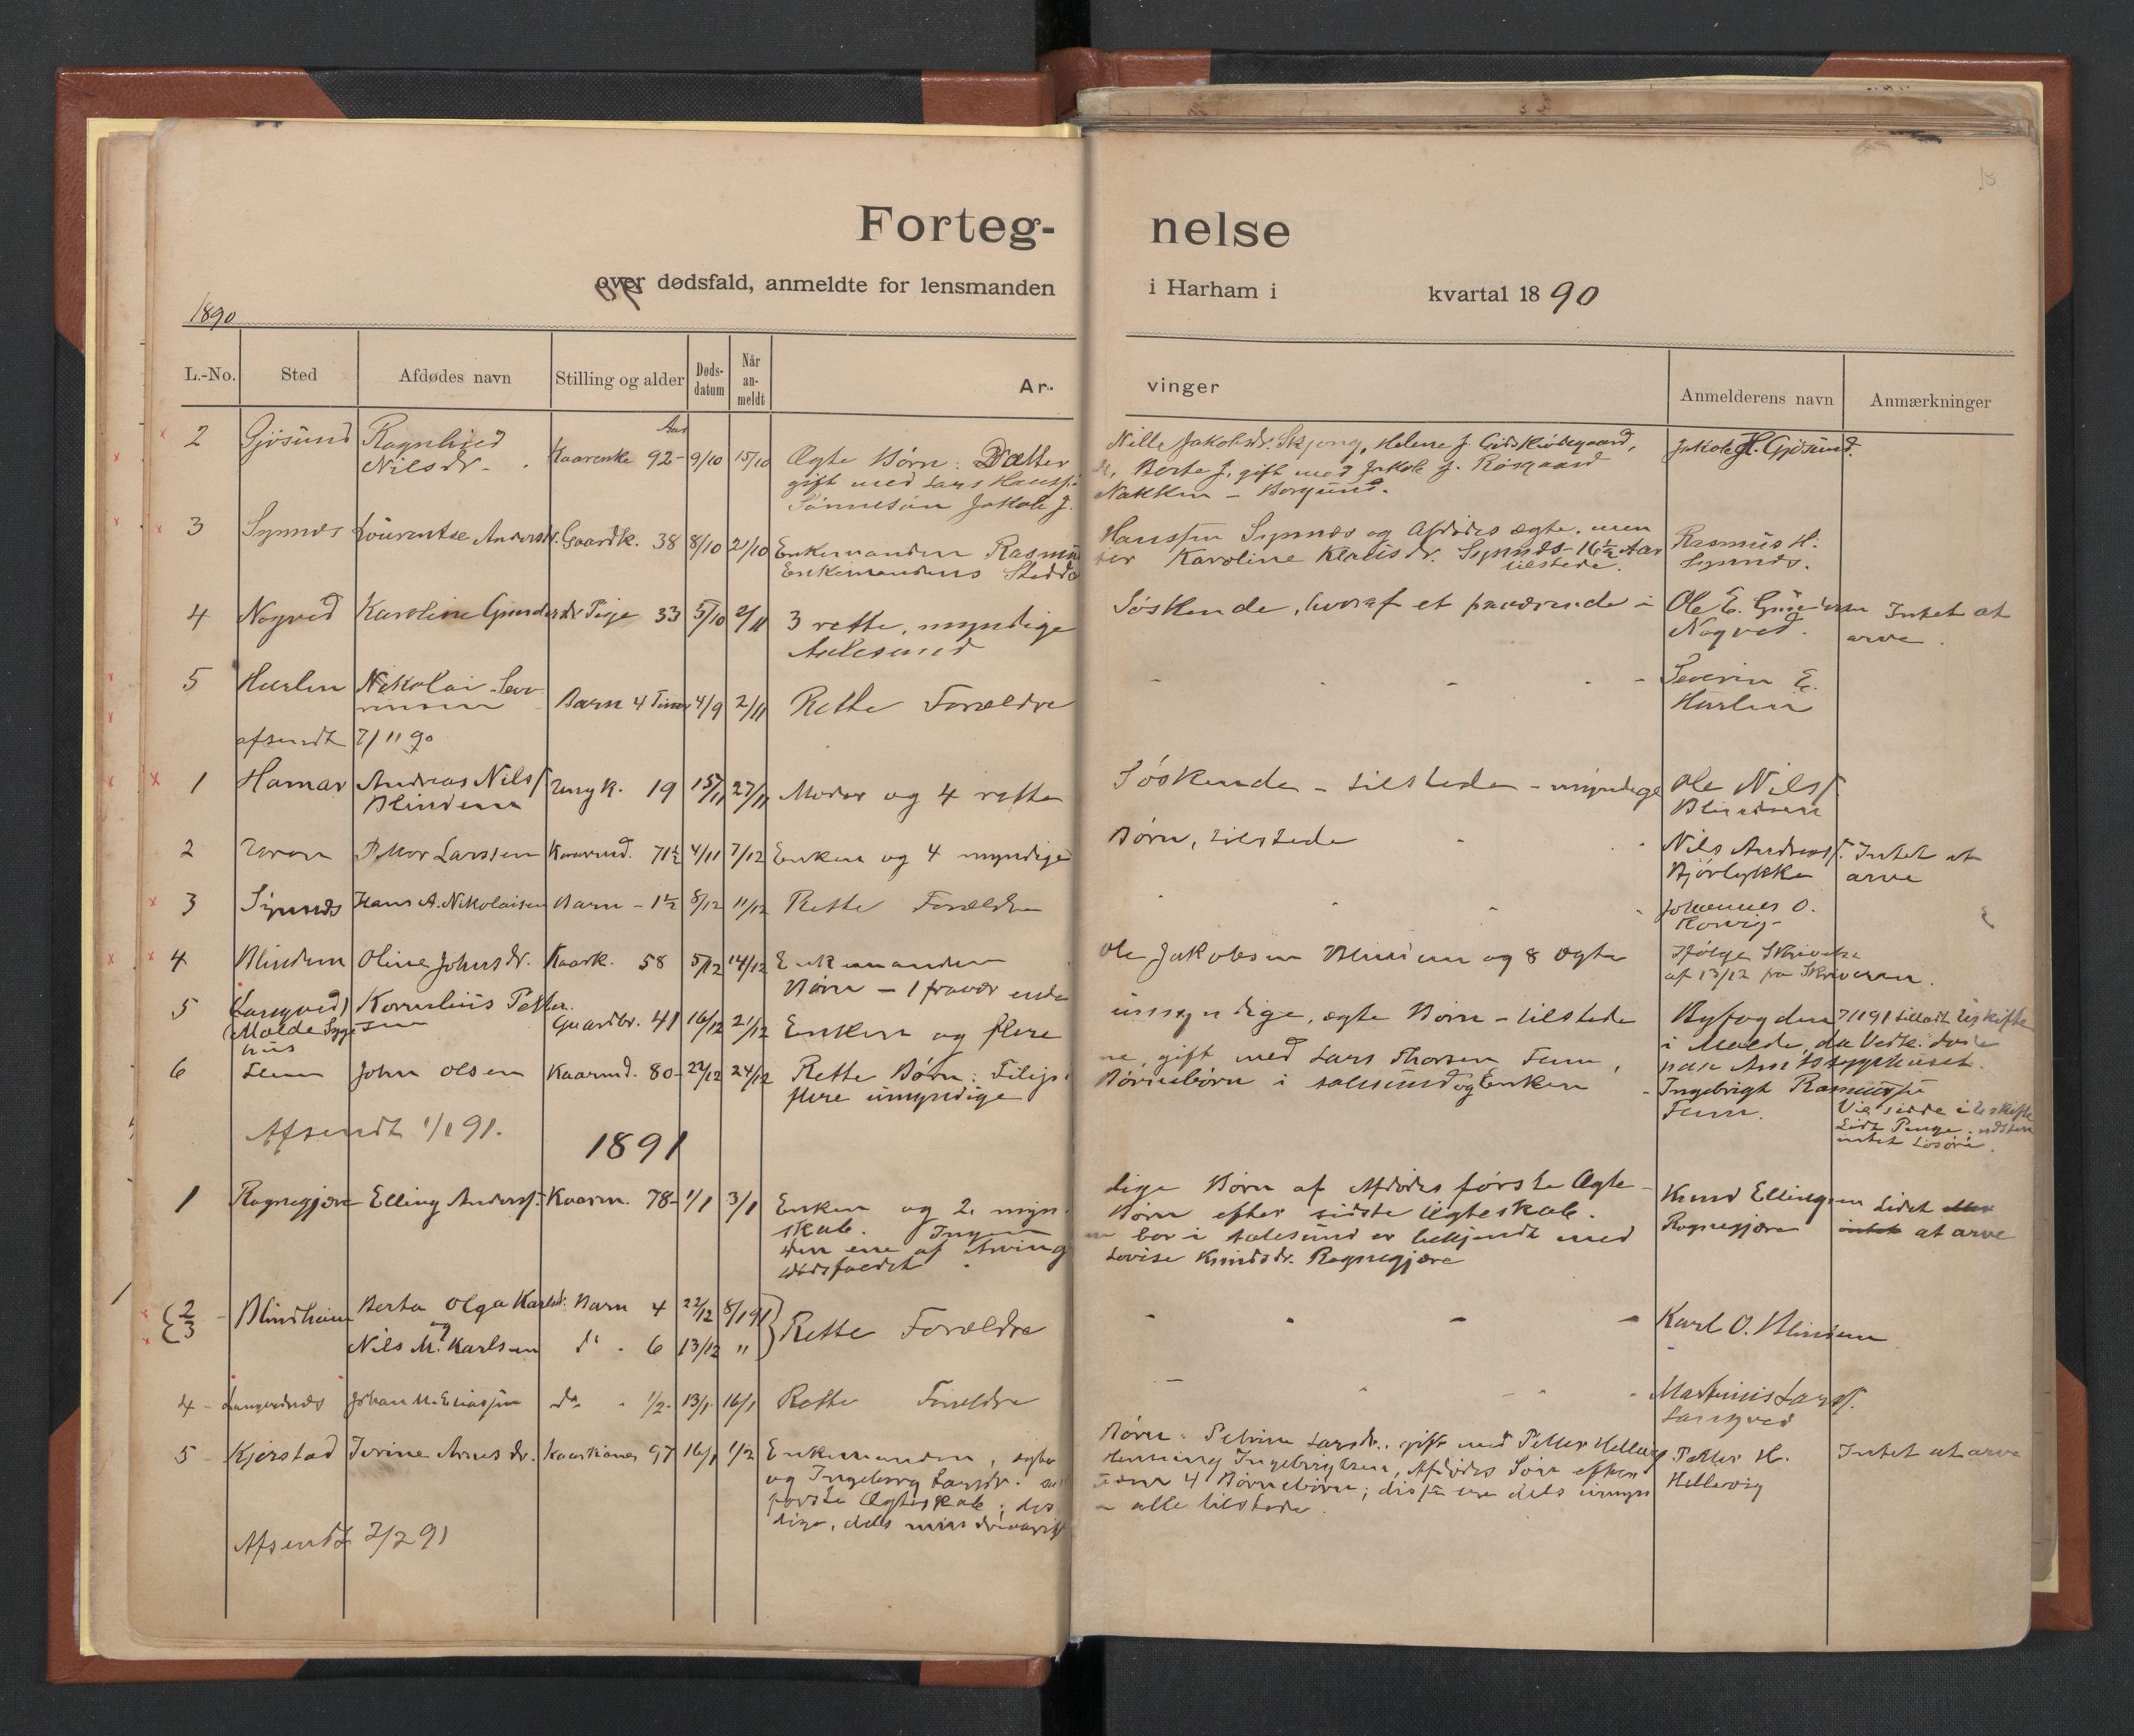 18
Forteg- nelse
over dødsfald, anmeldte for lensmanden i Harham i kvartal 1890
1890
L.-No. Sted Afdødes navn Stilling og alder Døds-datum Når an-meldt Ar- vinger Anmelderens navn Anmærkninger
2 Gjøsund Ragnhild Kaarenke Aar 92 - 9/10 15/10 Ægte Børn: Datter Nille Jakobsdr. Skjong, Helene J. Jakob H. Gjøsund.
Nilsdr. gift med Lars Hanss. Berte J. gift med Jakob J. Røsgaard
Sønnesøn Jakob J. Nakken - Borgund.
3 Synnes Lourentse Andersdr. Gaardk. 38 8/10 21/10 Enkemanden Rasmus Hanssen Synnes og Afdødes ægte. men Rasmus H.
Enkemandens Karoline Klausdr. Synnes - 16½ Aar Synnes.
tilstede.
4 Nogved Karoline Gundersdr. Pige 33 5/10 2/11 3 rette, myndige Søskende, hvoraf et fraværende i Ole E. Intet at
Aalesund Nogved. arve.
5 Hurlen Nikolai Seve- Barn 4 Timer 4/9 2/11 Rette Forældre Severin E.
rinsen Hurlen
afsendt 7/11 90
1 Hamar Andreas Nilss. Ungk. 19 15/11 27/11 Moder og 4 rette Søskende - tilstede - myndige Ole Nilss.
Blindem Blindem
2 Petter Larssen Kaarmd. 71½ 4/11 7/12 Enken og 4 myndige Børn, tilstede Nils Andreas. Intet at
Bjørlykke arve
3 Synnes Hans A. Nikolaisen Barn - 1½ 8/12 11/12 Rette Forældre Johannes O.
4 Blindem Oline Johnsdr. Kaark. 58 5/12 14/12 Enkemanden Ole Jakobsen Blindem og 8 ægte Ifølge Skrivelse
Børn - 1 fraværende af 13/12 fra Skriveren.
5 (Langved) Kornelius Petter- Gaardbr. 41 16/12 21/12 Enken og flere umyndige, ægte Børn - tilstede Byfogden 7/1 91 tilladt Uskifte
(Molde Syge- sen i Molde, da Vedk. døde
hus paa Amtssygehuset.
6 Fem John Olsen Kaarmd. 80 - 22/12 24/12 Rette Børn: gift med Lars Thorsen Fem, Ingebrigt Rasmussen
flere umyndige Børnebørn i Aalesund og Enken Fem. Vil sidde i Uskifte
Lidt Penge. næsten
intet Løsøre.
Afsendt 1/1 91.
1891
1 Rognegjære Elling Anderss. Kaarm. 78 - 1/1 3/1 Enken og 2 myn- dige Børn af Afdødes første Ægte- Knud Ellingsen Lidet eller
skab. Ingen Børn efter sidste Ægteskab. Rognegjære intet at arve
den ene af Arving- bor i Aalesund er bekjendt med
dødsfaldet Lovise Knudsdr. Rognegjære
{2 Blindheim Berta Olga Karlsd. Barn 4 22/12 8/1 91 } Rette Forældre Karl O. Blindem
{3 og Nils M. Karlsen do - 6 13/12 "
4 - Johan M. Eliassen do - ½ - 13/1 16/1 Rette Forældre Martinus Larss.
Langved
5 - Kjerstad Iverine Arnesdr. 97 16/1 1/2 Enkemanden, ægte Børn: Petrine Larsdr. gift med Petter Hellevig Petter H. Intet at arve
og Ingeborg Larsdr. Henning Ingebrigtsen, Afdødes Søn efter Hellevig
første Ægteskab; 4 Børnebørn; disse ere dels umyn-
dige, dels mindreaarige alle tilstede.
Afsendt 7/2 91